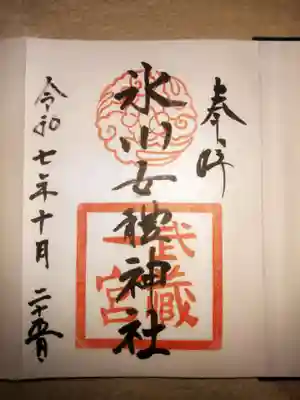 奉拝
氷川女體神社
武藏
一宮
令和七年十月二十五日